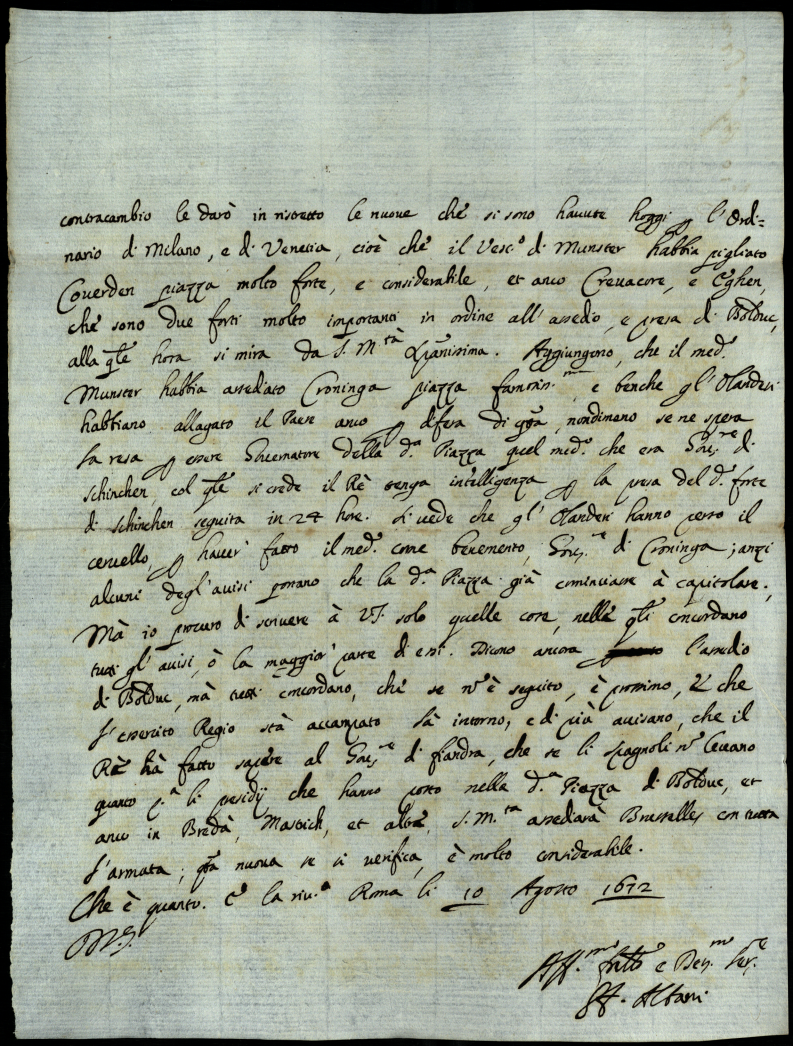 contracambio le darò in ristretto le nuove che si sono havute hoggi p l'Ordi=
nario di Milano, e di Venetia, cioè che il Vesc.º di Munster habbia pigliato
Coverden piazza molto forte, e considerabile, et anco Crevacore, e
che sono due forti molto importanti in ordine all'assedio, e presa di Bolduc,
alla qle hora si mira da S. M.tà Aggiungono, che il med.º
Munster habbia assediato Croninga piazza e benche gl'Olandesi
habbiano allagato il Paese anco p difesa di qta, nondimeno se ne spera
la resa p essere Governatore della d.ª Piazza quel med.º che era Gov.re di
Schinchen, col qle si crede il Rè tenga intelligenza p la presa del d.º forte
di Schinchen seguita in 24 hore. Si vede che gl'Olandesi hanno perso il
cervello, p haver fatto il med.º come benemerito, Gov.re di Croninga; anzi
alcuni degl'avisi portano che la d.ª Piazza già cominciasse à capitolare.
Mà io procuro di scrivere à VS. solo quelle cose, nelle qli concordano
tutti gl'avisi, ò la maggior parte di essi. Dicono ancora l'assedio
di Bolduc, mà tutti concordano, che se nõ è seguito, è prossimo, che
l'essercito Regio stà accampato là intorno, e di più avisano, che il
Rè hà fatto sapere al Gov.re di fiandra, che se li spagnoli nõ levano
quanto p.ª li presidij che hanno posto nella d.ª Piazza di Bolduc, et
anco in Bredà, Mastrich, et altre, S. M.tà assediarà Brusselles con tutta
l'armata; qta nuova se si verifica, è molto considerabile.
Che è quanto. E la riv.º Roma li 10 Agosto 1672
Aff.mo fratello e Ser.re
Albani